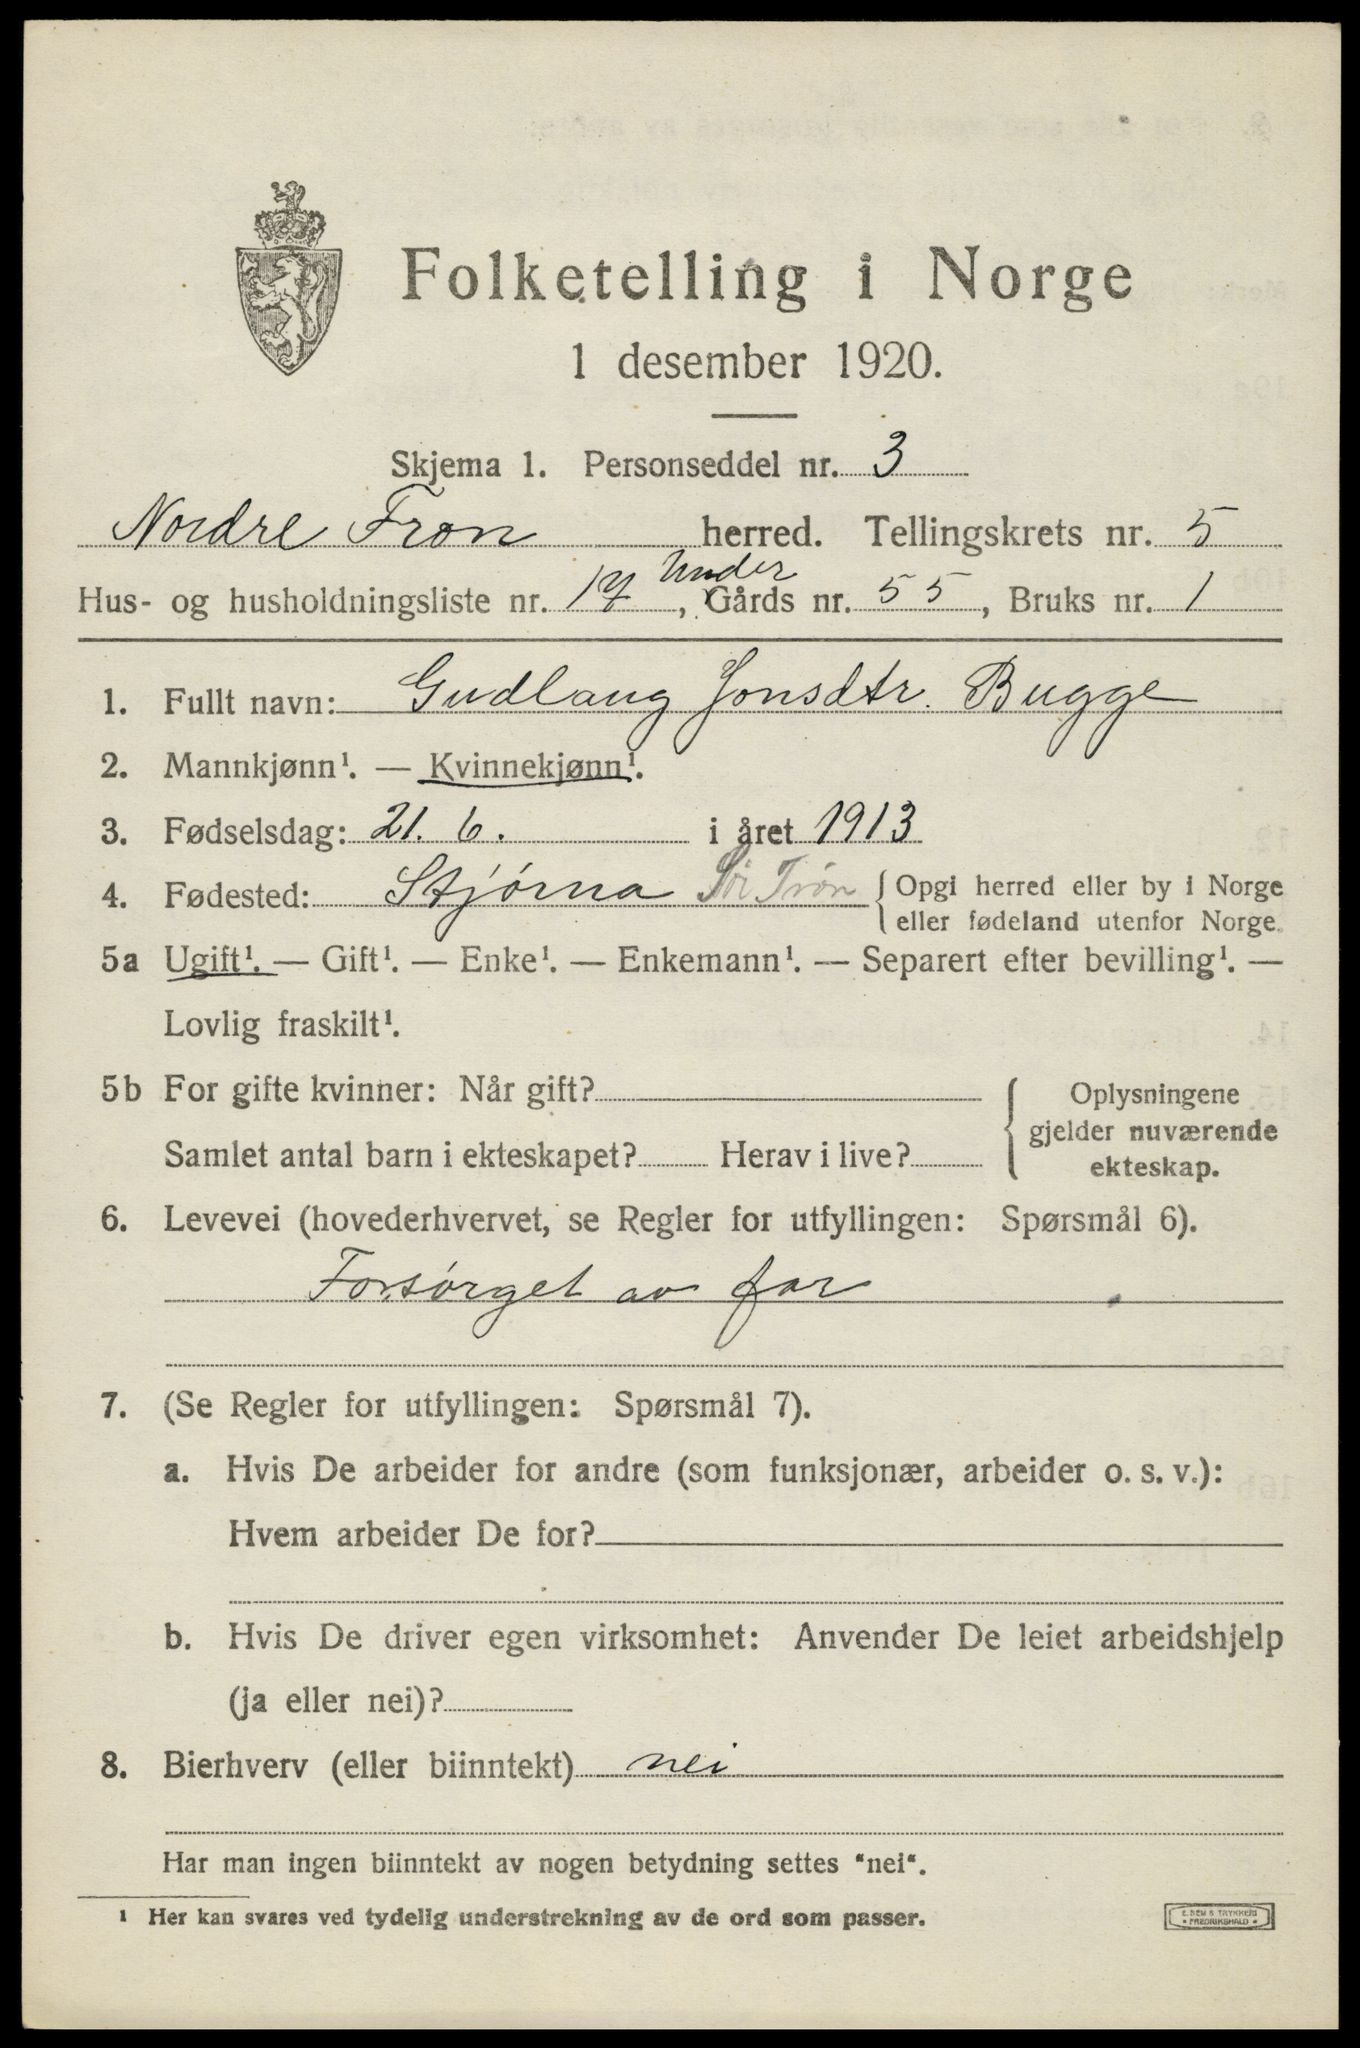 Folketelling i Norge
1 desember 1920.
Skjema 1. Personseddel nr. 3
Nordre Fron herred. Tellingskrets nr. 5
Under
Hus- og husholdningsliste nr. 17, Gårds nr. 55, Bruks nr. 1
1. Fullt navn: Gudlaug Jonsdtr. Bugge
2. Mannkjønn¹. — Kvinnekjønn¹.
3. Fødselsdag: 21. 6. i året 1913
4. Fødested: Stjørna Sør Trøn { Opgi herred eller by i Norge
eller fødeland utenfor Norge.
5a Ugift¹. — Gift¹. — Enke¹. — Enkemann¹. — Separert efter bevilling¹. —
Lovlig fraskilt¹.
5b For gifte kvinner: Når gift? { Oplysningene
gjelder nuværende
Samlet antal barn i ekteskapet? Herav i live? ekteskap.
6. Levevei (hovederhvervet, se Regler for utfyllingen: Spørsmål 6).
Forsørget av far
7. (Se Regler for utfyllingen: Spørsmål 7).
a. Hvis De arbeider for andre (som funksjonær, arbeider o. s. v.):
Hvem arbeider De for?
b. Hvis De driver egen virksomhet: Anvender De leiet arbeidshjelp
(ja eller nei)?
8. Bierhverv (eller biinntekt) nei
Har man ingen biinntekt av nogen betydning settes "nei".
¹ Her kan svares ved tydelig understrekning av de ord som passer.
E. SEM'S TRYKKERI
• FREDRIKSHALD •